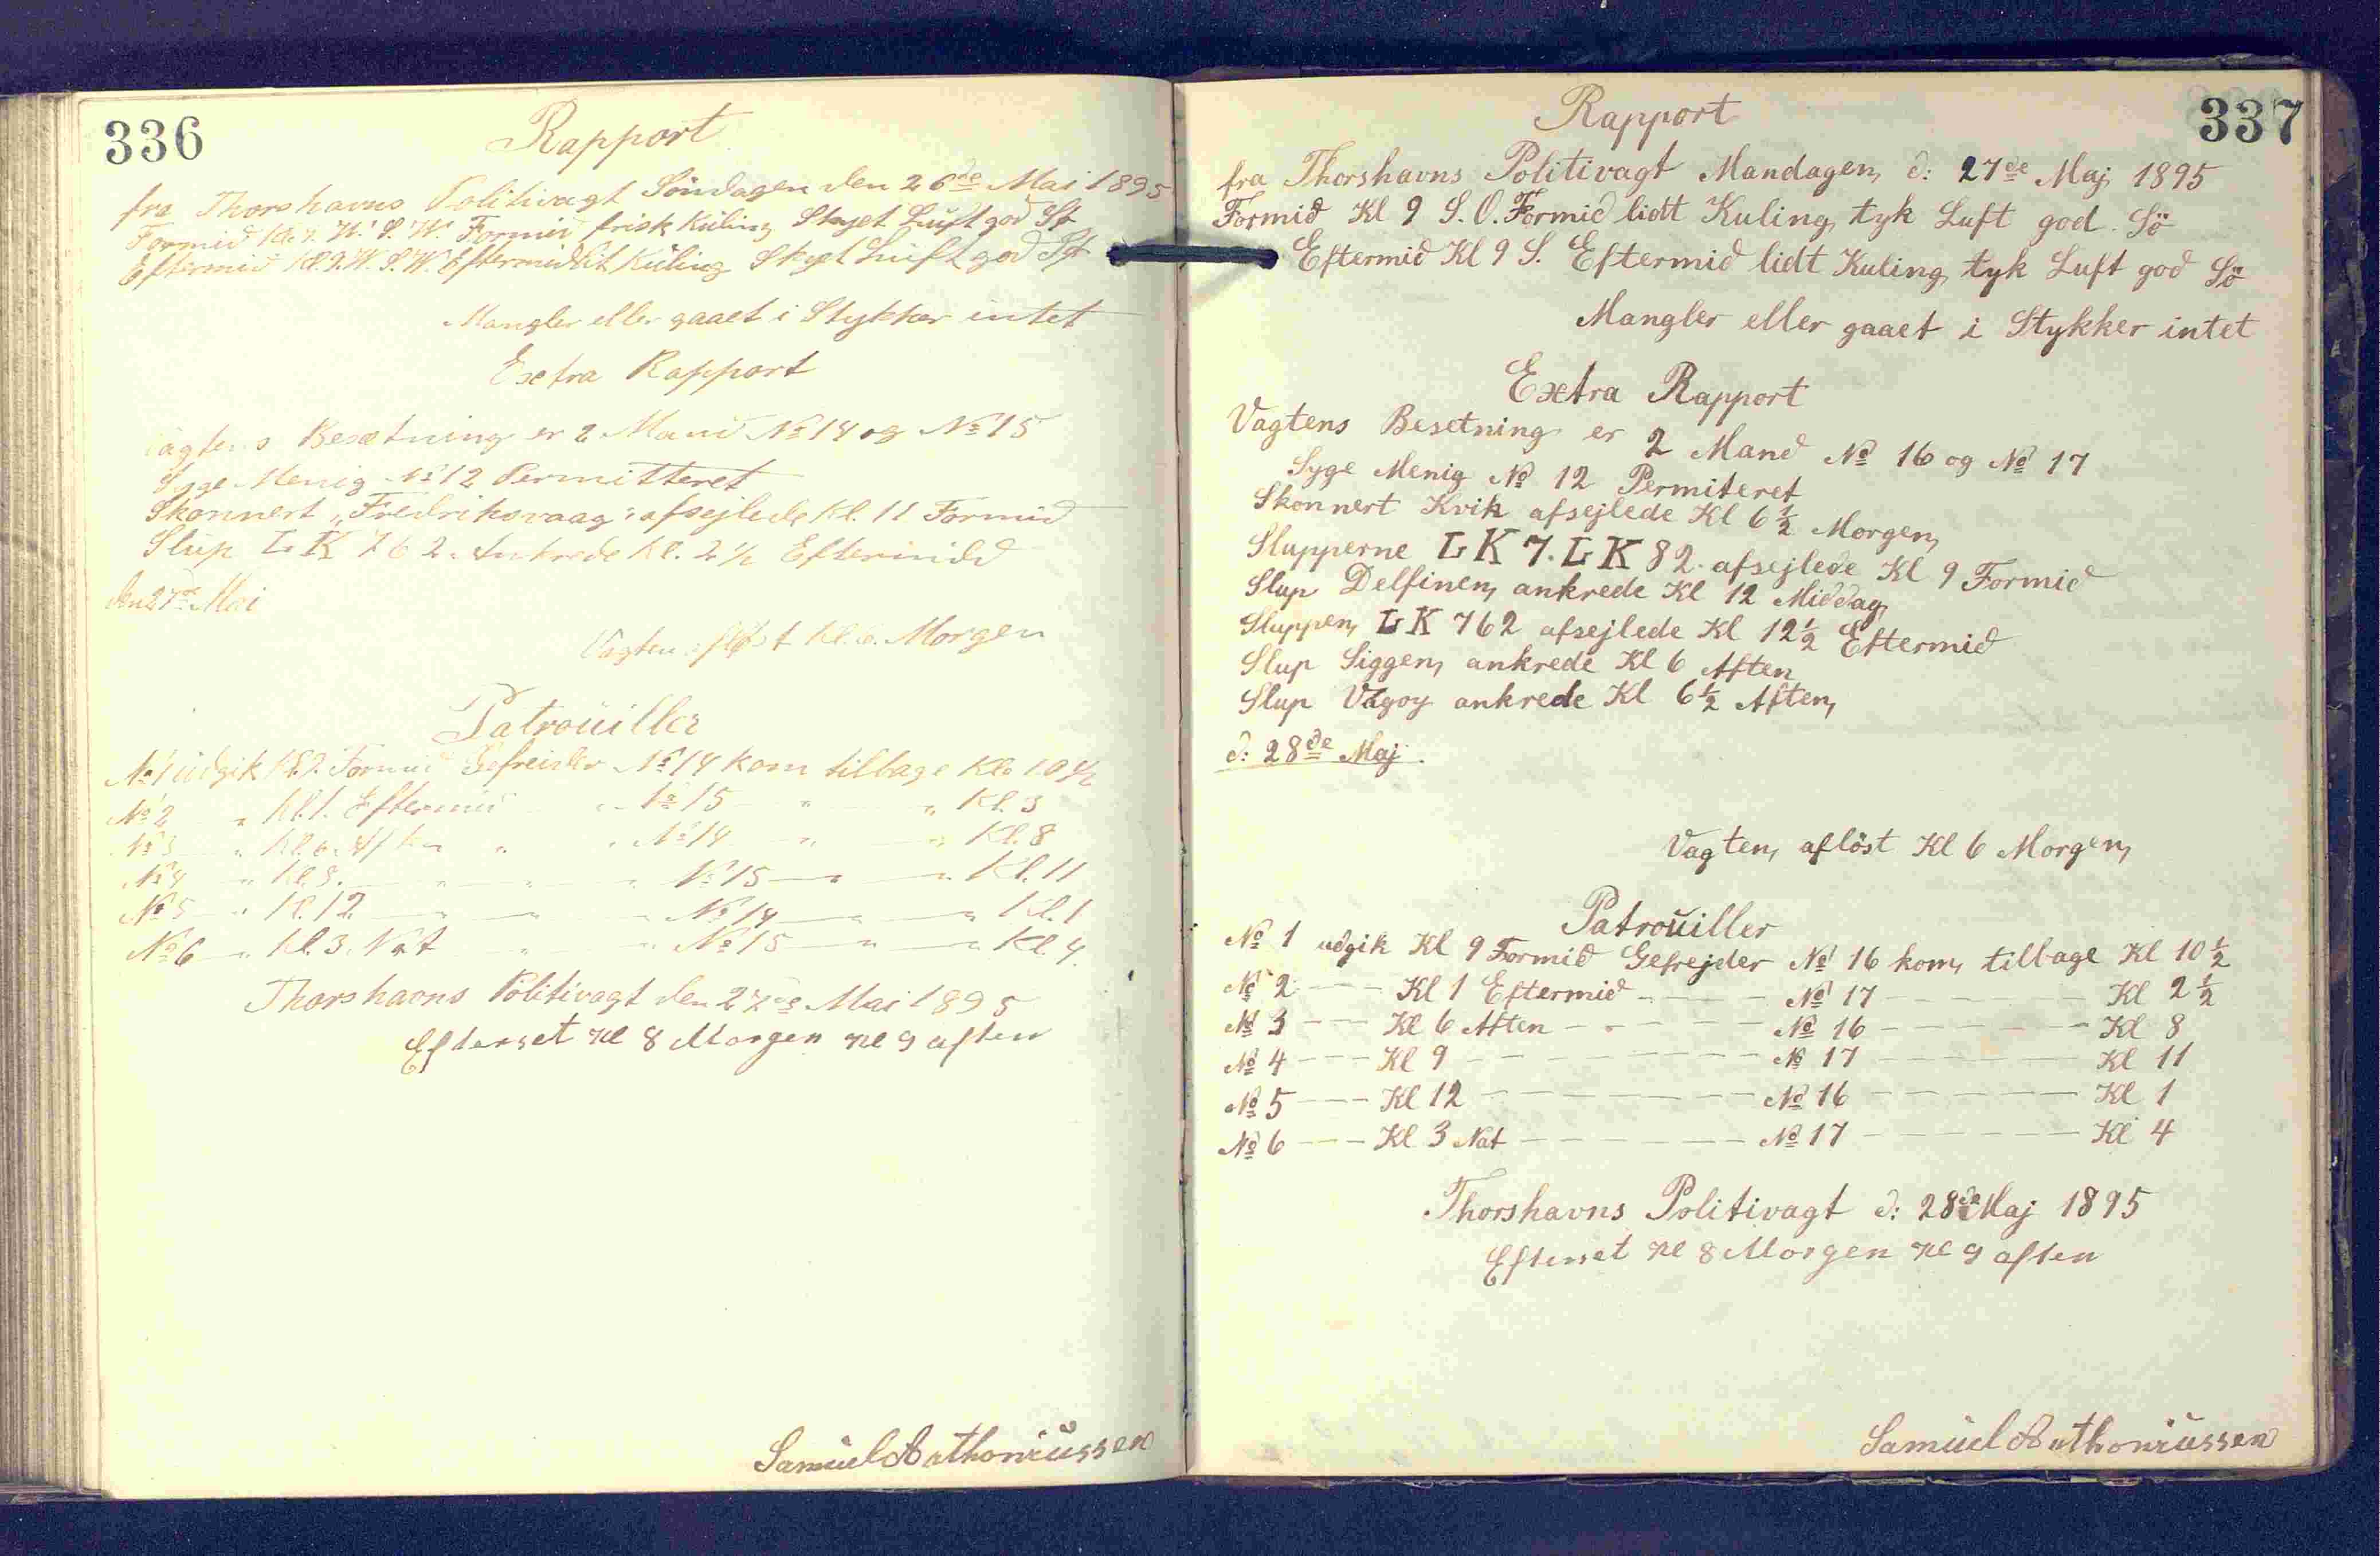 336
Rapport
fra Thorshavns Politivagt Söndagen den 26de Mai 1895
Formid Kl. 9. W. S. W. Formid frisk Kuling Skyet Luft god Sø
Eftermid Kl. 9. W. S. W. Eftermid lidt Kuling Skyet Luft god Sø
Mangler eller gaaet i Stykker intet
Extra Rapport
Vagtens Besætning er 2 Mand No 14 og No 15
Syge Menig No 12 Permitteret
Skonnert „Fredriksvaag" afsejlede Kl. 11 Formid
Slup LK 762. Ankrede Kl. 2 1/2 Eftermidd
den 27de Mai
Vagten afløst Kl. 6. Morgen
Patroüiller
No 1 üdgik Kl. 9. Formid Gefreider No 14 kom tilbage Kl. 10 1/2
No 2 „ Kl. 1. Eftermid „ No 15 „ „ Kl. 3
No 3 „ Kl. 6. Aften „ „ No 14 „ „ Kl. 8
No 4 „ Kl. 9. „ „ „ No 15 „ „ Kl. 11
No 5 „ Kl. 12 „ „ „ No 14 „ „ Kl. 1
No 6 „ Kl. 3. Nat „ „ No 15 „ „ Kl. 4.
Thorshavns Politivagt den 27de Mai 1895
Efterset Kl 8 Morgen Kl 9 aften
Samüel Anthoniüssen
337
Rapport
fra Thorshavns Politivagt Mandagen, d: 27de Maj 1895
Formid Kl 9 S. O. Formid lidt Kuling, tyk Luft god Sö
Eftermid Kl 9 S. Eftermid lidt Kuling, tyk Luft god Sö
Mangler eller gaaet i Stykker intet
Extra Rapport
Vagtens Besetning er 2 Mand No 16 og No 17
Syge Menig No 12 Permiteret
Skonnert Kvik afsejlede Kl 6 1/2 Morgen,
Slupperne LK 7. LK 82. afsejlede Kl 9 Formid
Slup Delfinen, ankrede Kl 12 Middag,
Sluppen, LK 762 afsejlede Kl 12 1/2 Eftermid
Slup Siggen, ankrede Kl 6 Aften
Slup Vagoy ankrede Kl 6 1/2 Aften,
d: 28de Maj.
Vagten, aflöst Kl 6 Morgen,
Patroüiller
No 1 udgik Kl 9 Formid Gefrejder No 16 kom, tilbage Kl 10 1/2
No 2 --- Kl 1 Eftermid --- No 17 --- Kl 2 1/2
No 3 --- Kl 6 Aften --- No 16 --- Kl 8
No 4 --- Kl 9 --- No 17 --- Kl 11
No 5 --- Kl 12 --- No 16 --- Kl 1
No 6 --- Kl 3 Nat --- No 17 --- Kl 4
Thorshavns Politivagt d: 28de Maj 1895
Efterset Kl 8 Morgen Kl 9 aften
Samüel Anthoniüssen